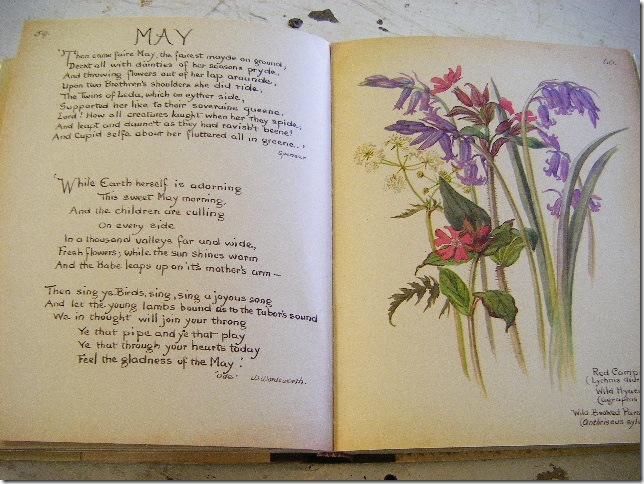 59.
MAY
'Then came faire May, the fairest mayde on ground,
Deckt all with dainties of her seasons pryde,
And throwing flowers out of her lap arounde.
Upon two Brethren's shoulders she did ride,
The Twins of Leda, which on eyther side,
Supported her like to their soveraine queene,
Lord! How all creatures laught when her They spide,
And leapt and daunc't as they had ravish't beene!
And Cupid selfe about her fluttered all in greene..'
Spenser
'While Earth herself is adorning
This sweet May morning,
And the children are culling
On every side
In a thousand valleys far and wide,
Fresh flowers; while the sun shines warm
And the Babe leaps up on it's mother's arm —
Then sing ye Birds, sing, sing a joyous song
And let the young lambs bound as to the Tabor's sound
We in thought will join your throng
Ye that pipe and ye that play
Ye that through your hearts today
Feel the gladness of the May'.
'Ode' W. Wordsworth.
60.
Red Camp
(Lychnis
Wild Hyac
(Agraphis
Wild Beaked Pars
(Anthriscus sylv